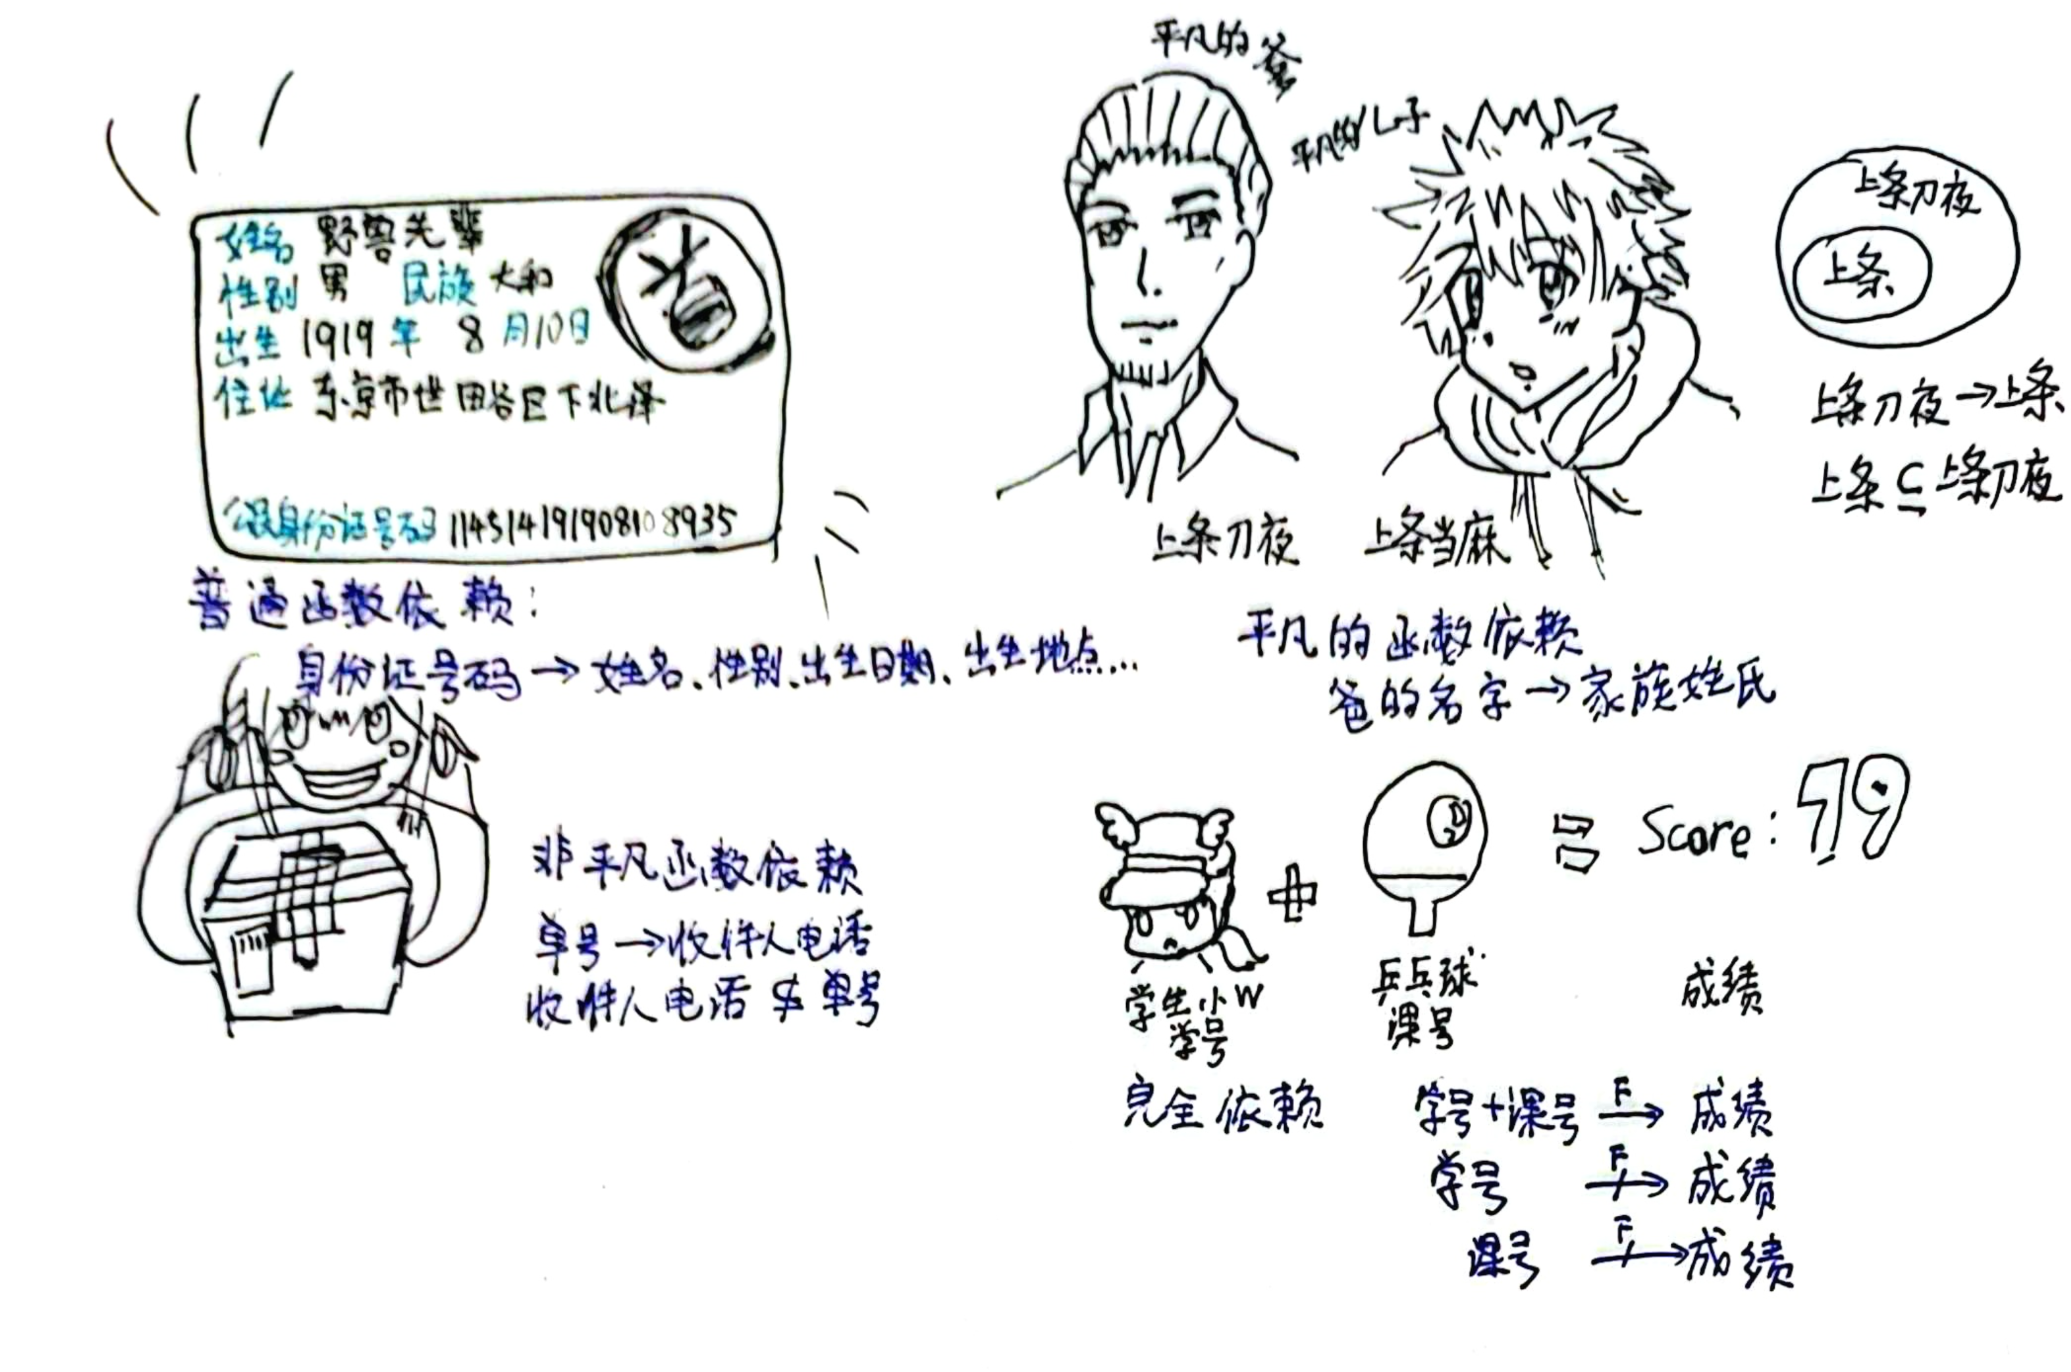 姓名 野兽先辈
性别 男 民族 大和
出生 1919年 8月10日
住址 东京市世田谷区下北泽
公民身份证号码 114514191908108935
普通函数依赖:
身份证号码→姓名、性别、出生日期、出生地点...
平凡的爸
平凡的儿子
上条刀夜
上条当麻
上条刀夜
上条
上条刀夜→上条
上条⊆上条刀夜
平凡的函数依赖
爸的名字→家族姓氏
非平凡函数依赖
单号→收件人电话
收件人电话⊄单号
Score: 79
学生小W
学号
乒乓球
课号
成绩
完全依赖
学号+课号 F→ 成绩
学号 F↛ 成绩
课号 F↛ 成绩